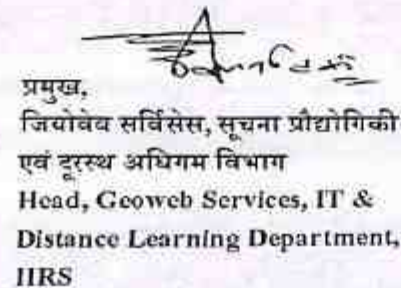 प्रमुख,
जियोवेब सर्विसेस, सूचना प्रौद्योगिकी
एवं दूरस्थ अधिगम विभाग
Head, Geoweb Services, IT &
Distance Learning Department,
IIRS